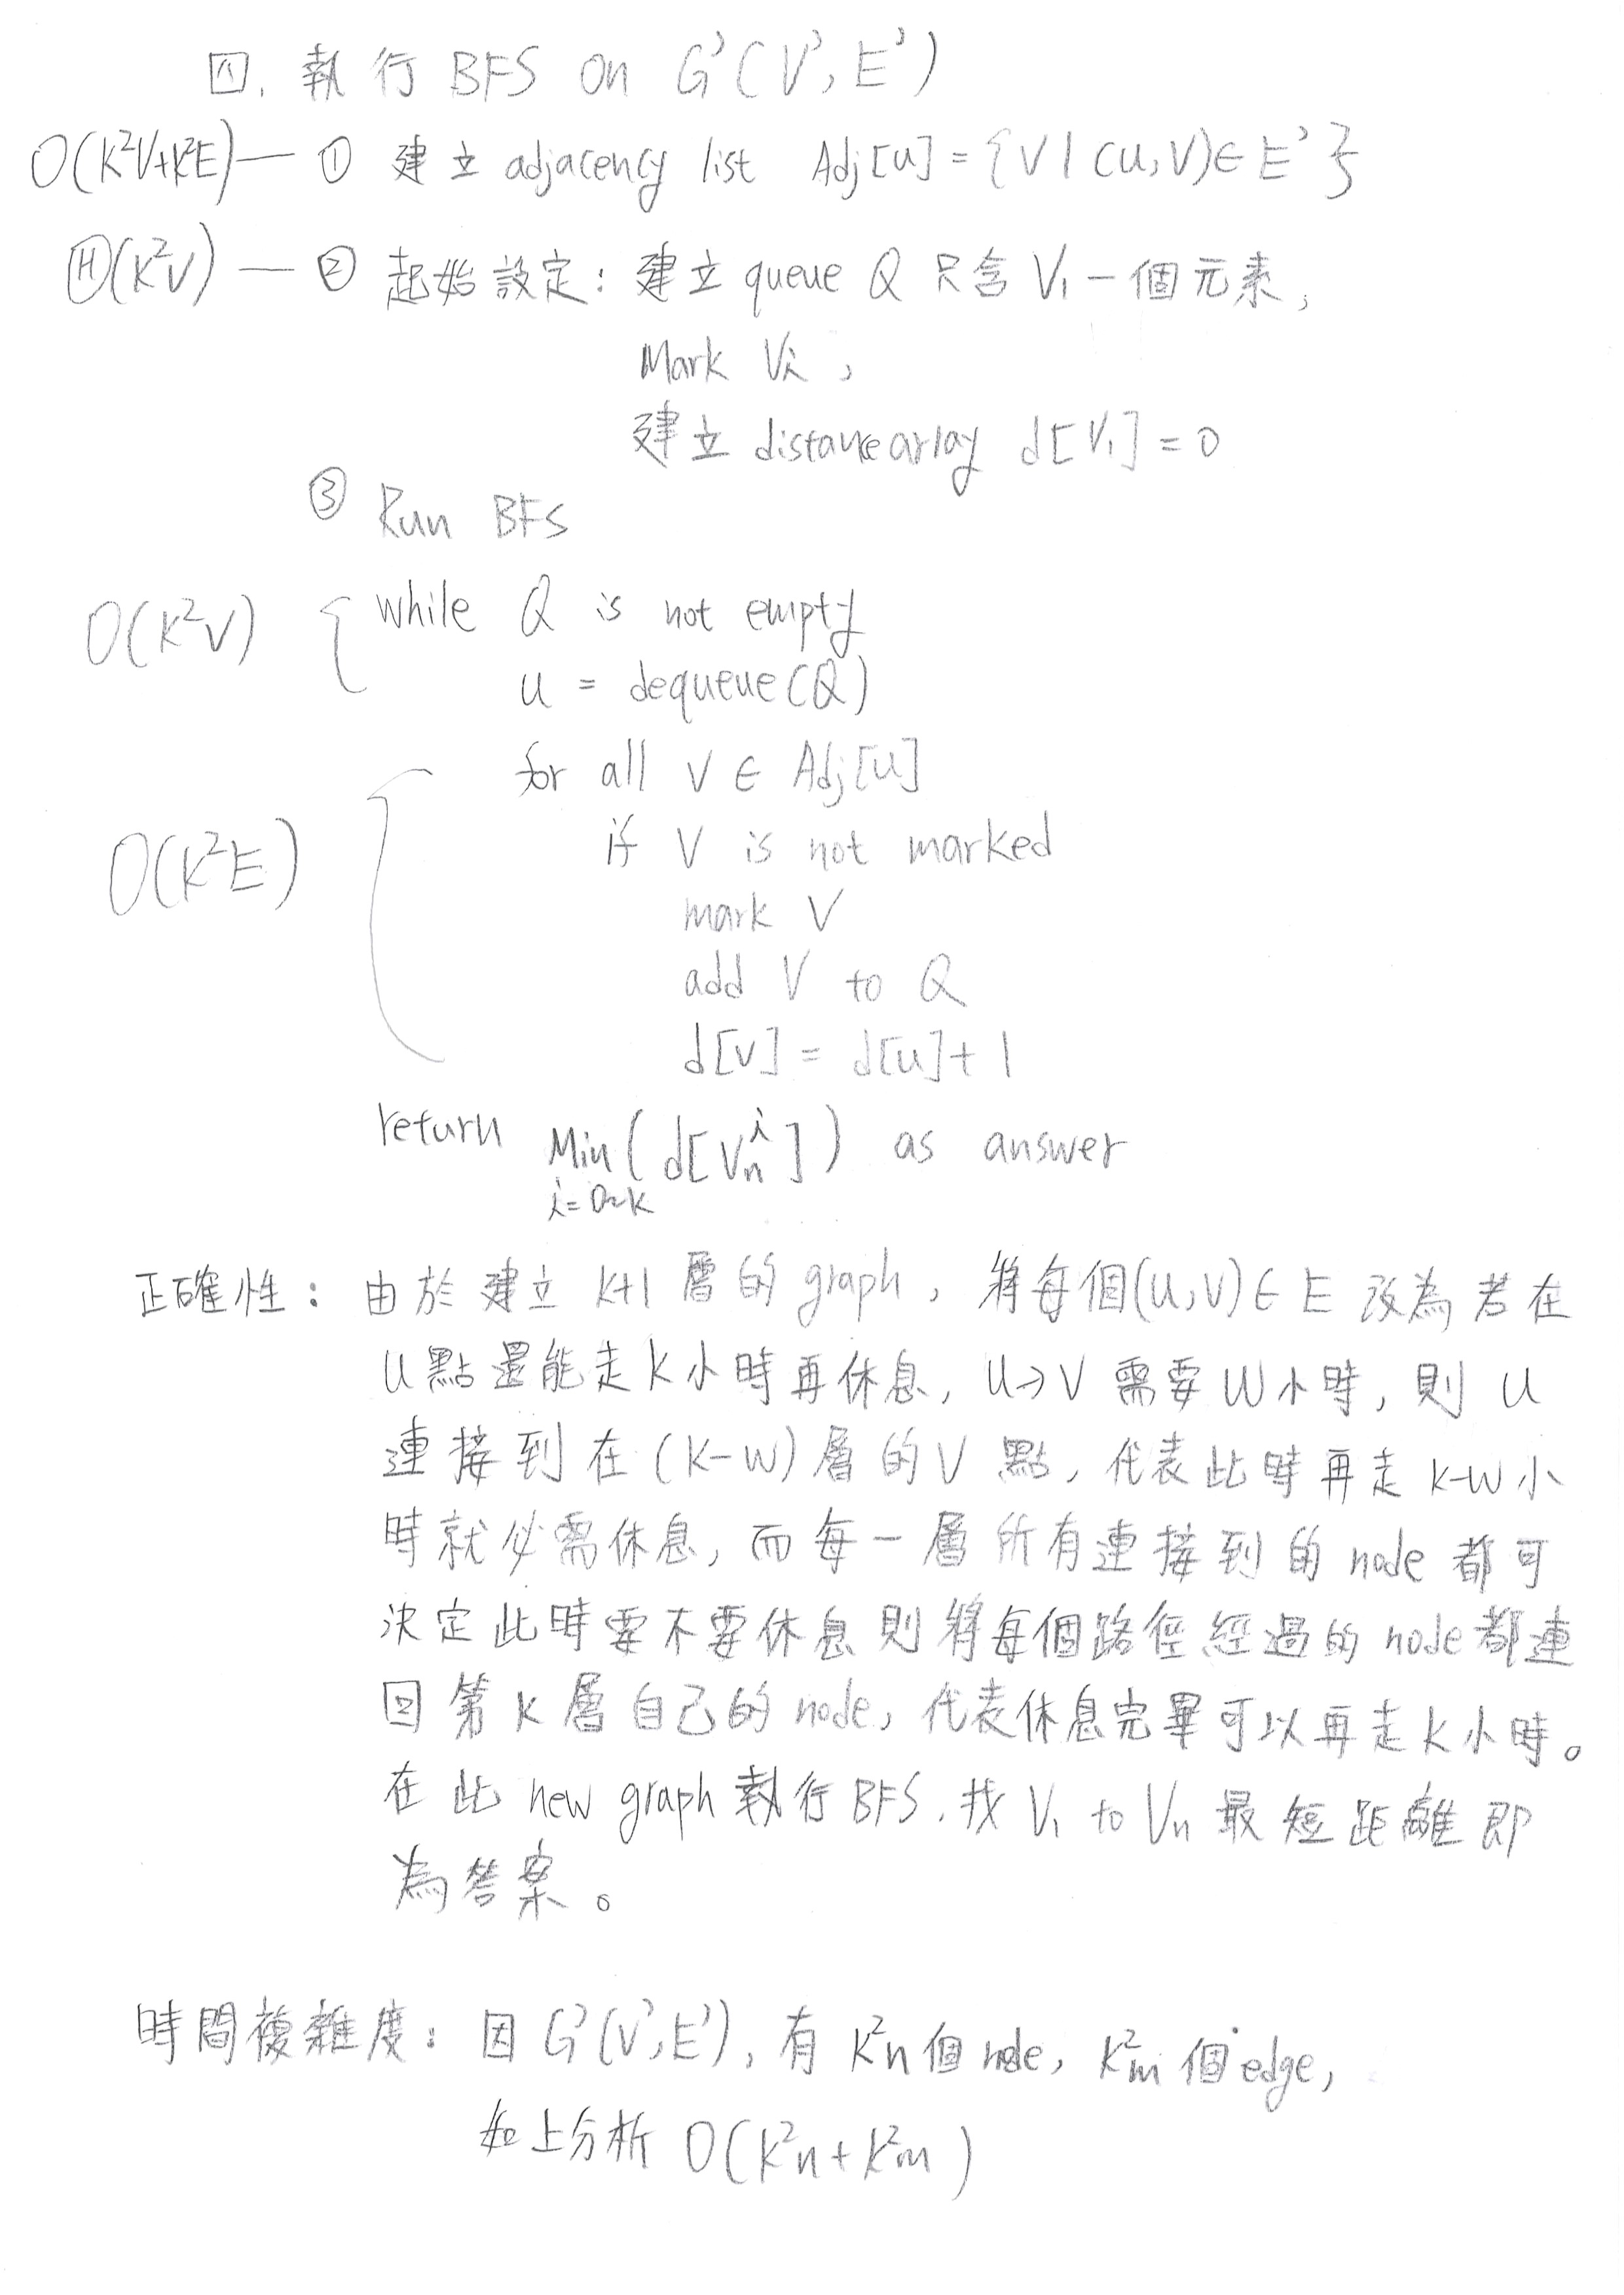 四. 執行 BFS on G'(V', E')
O(K²V+K²E) — ① 建立 adjacency list Adj[u] = {V | (u,V) ∈ E'}
Ⓗ(K²V) — ② 起始設定: 建立 queue Q 只含 V₁ 一個元素,
Mark Vi,
建立 distance array d[V₁] = 0
③ Run BFS
O(K²V) { while Q is not empty
u = dequeue(Q)
for all V ∈ Adj[u]
if V is not marked
mark V
O(K²E) add V to Q
d[v] = d[u]+1
return Min i=0~k (d[Vₙⁱ]) as answer
正確性: 由於建立 k+1 層的 graph, 將每個(u,v)∈E 改為若在
u點還能走k小時再休息, u→v 需要 w小時, 則 u
連接到在 (k-w) 層的V 點, 代表此時再走 k-w小
時就必需休息, 而每一層所有連接到的 node 都可
決定此時要不要休息則將每個路徑經過的 node都連
回第k層自己的 node, 代表休息完畢可以再走k小時。
在此 new graph 執行 BFS. 找 V₁ to Vₙ 最短距離即
為答案。
時間複雜度: 因 G'(V',E'), 有 k²n 個 node, k²m 個 edge,
如上分析 O(k²n + k²m)